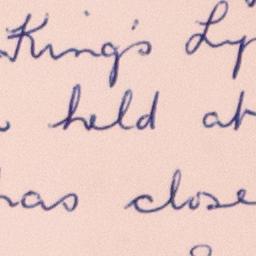 King's Ly
held at
has close